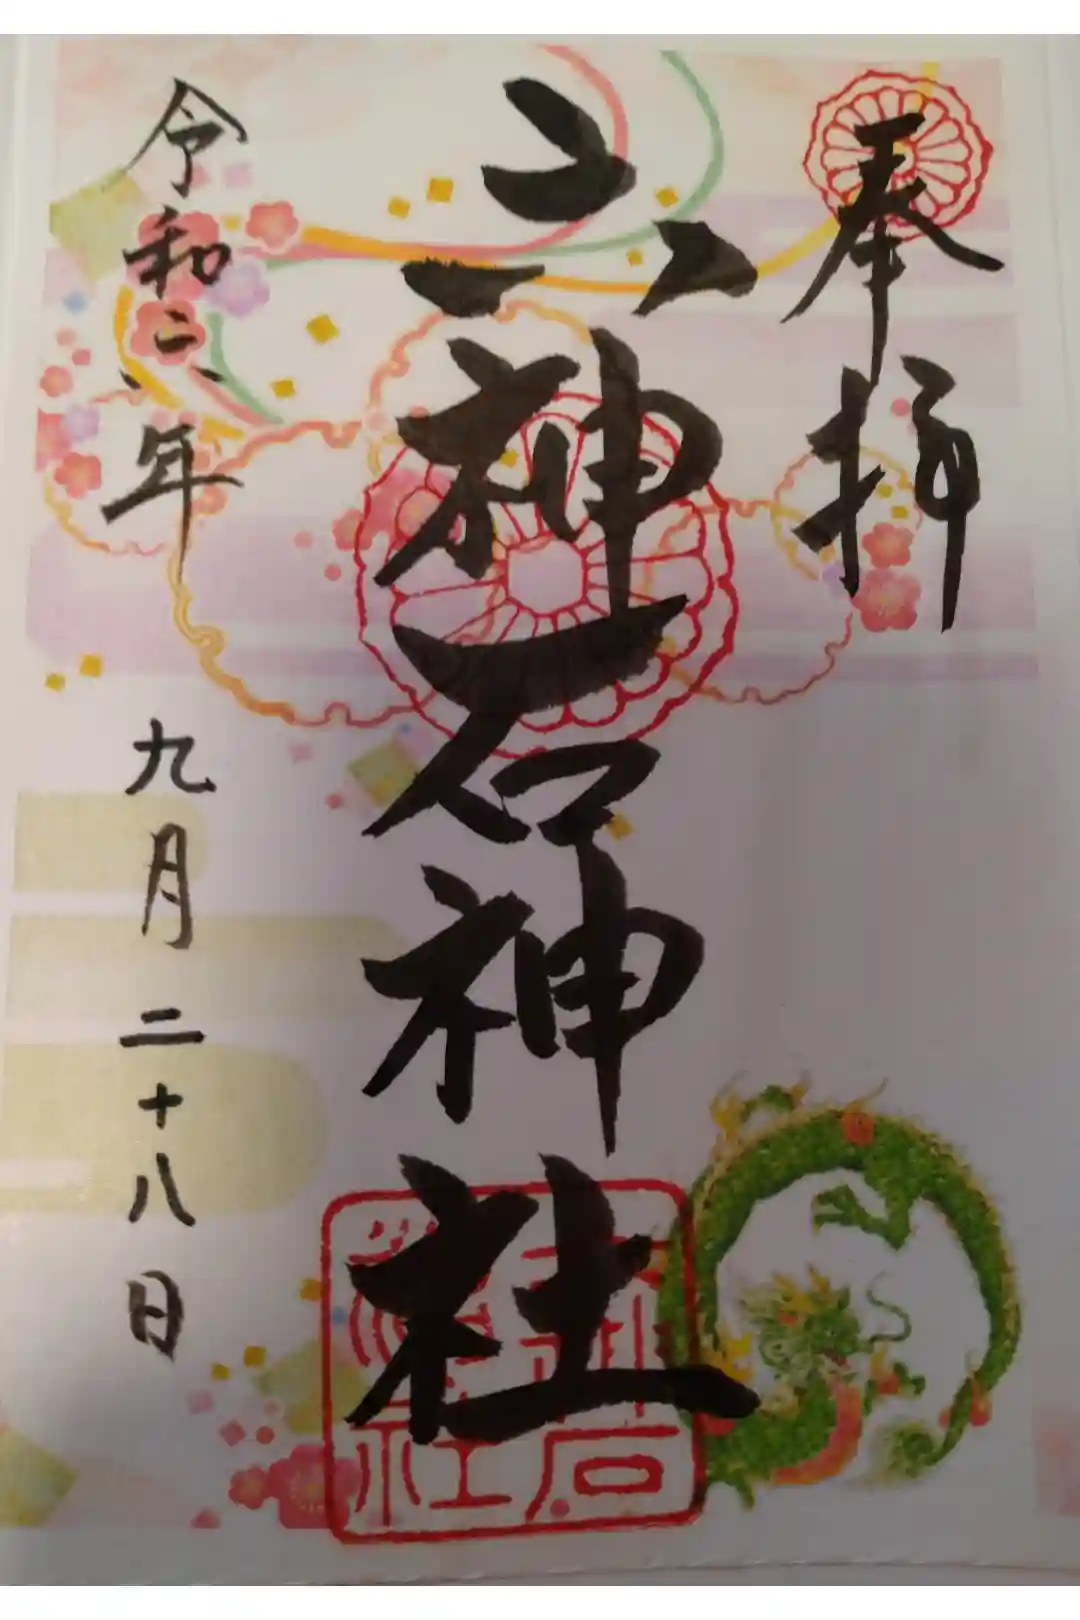 奉拝
六神石神社
令和六年 九月二十八日